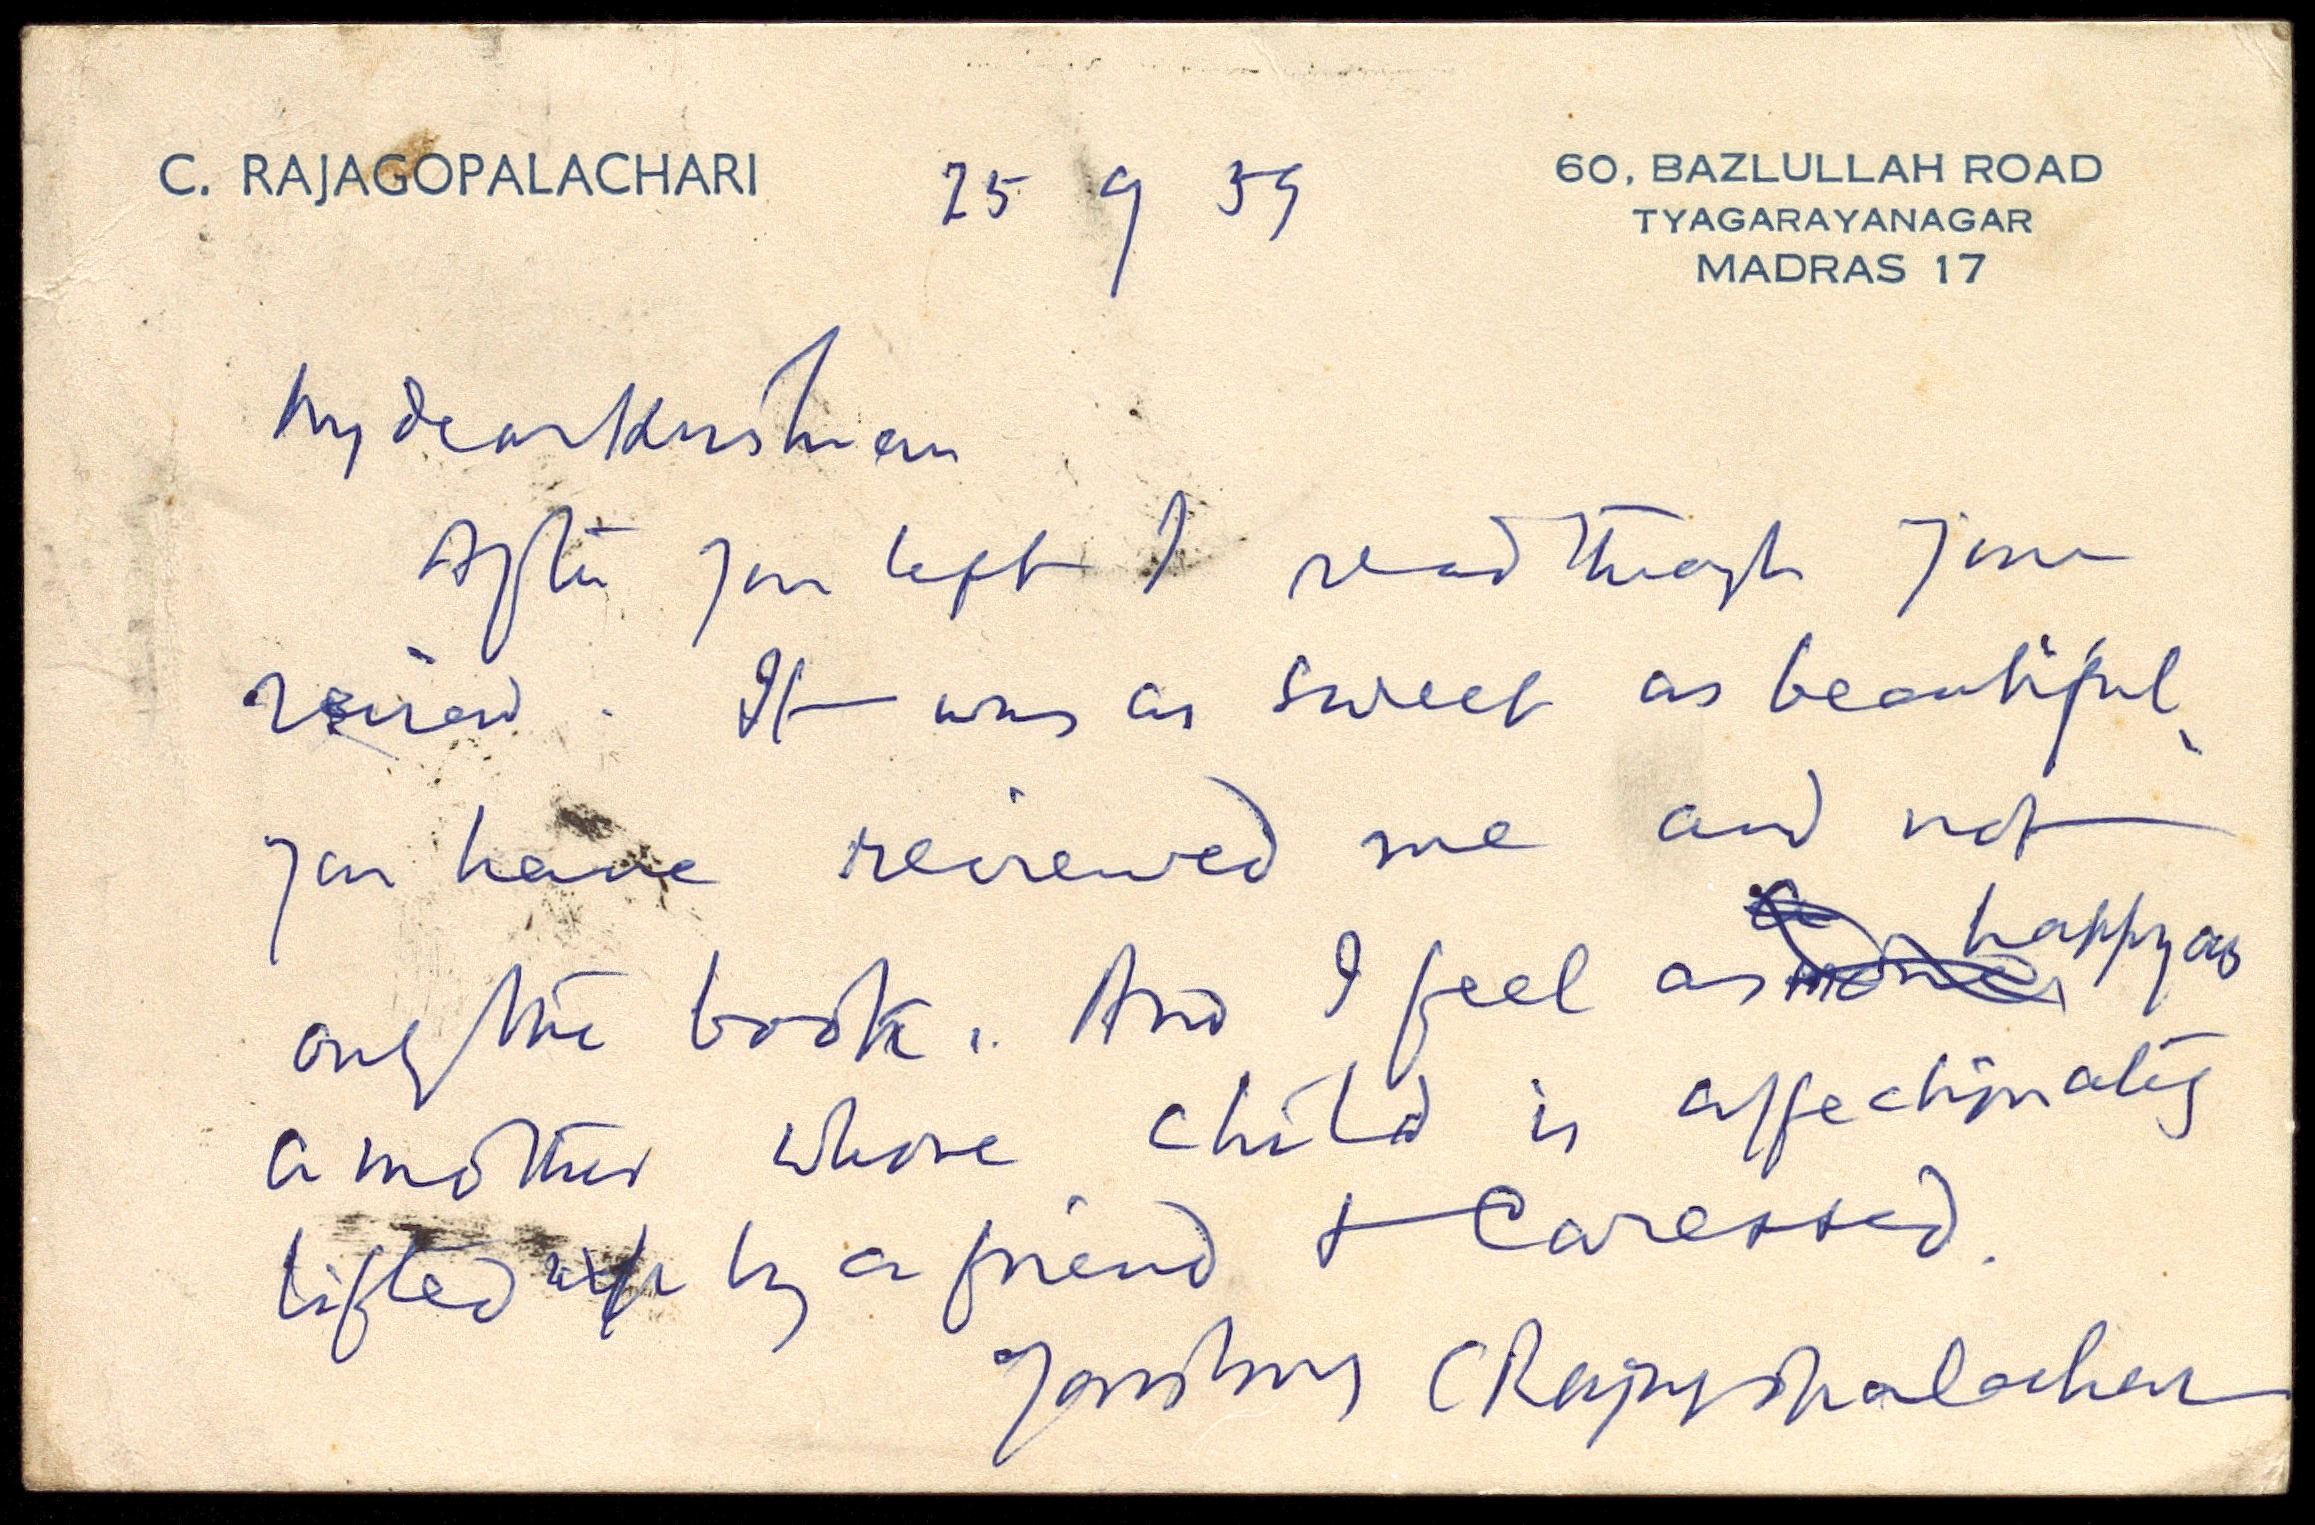 C. RAJAGOPALACHARI
25 9 59
60, BAZLULLAH ROAD
TYAGARAYANAGAR
MADRAS 17
My dear Krishnan
After you left I read through your
review. It was as sweet as beautiful,
you have reviewed me and not
only the book. And I feel as happy as
a mother whose child is affectionately
lifted up by a friend & caressed.
Yours C Rajagopalachari